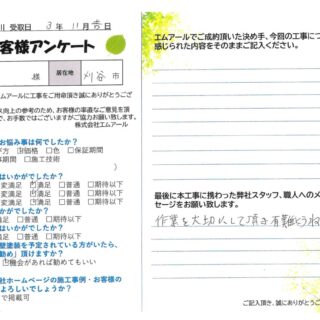 受取日 3年 11月 吉日
客様アンケート
様 居在地 刈谷 市
エムアールに工事をご用命頂き誠にありがとうござ
ス向上の参考のため、お客様の率直なご意見を頂
で、お手数ではございますがご協力お願い致します。
株式会社エムアール
お悩み事は何でしたか?
び方 ☑価格 □色 □保証期間
事期間 □施工技術
はいかがでしたか?
変満足 ☑満足 □普通 □期待以下
変満足 ☑満足 □普通 □期待以下
はいかがでしたか?
変満足 ☑満足 □普通 □期待以下
はいかがでしたか?
変満足 □満足 □普通 □期待以下
壁塗装を予定されている方がいたら、
勧め」頂けますか?
☑機会があれば勧めてもいい
社ホームページの施工事例・お客様の
よろしいでしょうか?
で掲載可
エムアールでご成約頂いた決め手、今回の工事につ
感じられた内容をそのままご記入ください。
最後に本工事に携わった弊社スタッフ、職人へのメ
セージをお願い致します。
作業を大切にして頂き有難とうね
ご記入頂き、誠にありがとうご